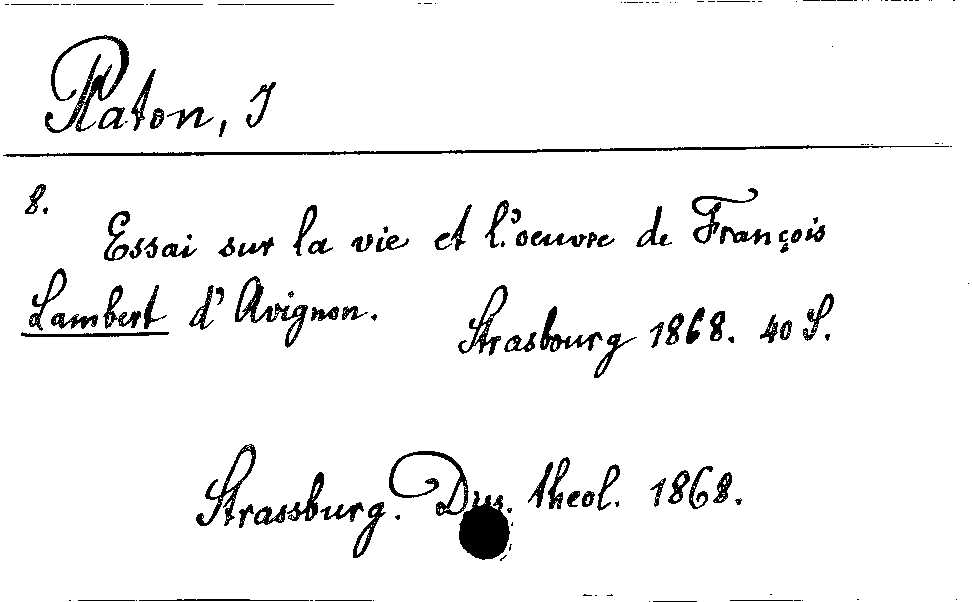 Raton, J
8.
Essai sur la vie et l'oeuvre de François
Lambert d'Avignon.
Strasbourg 1868. 40 S.
Strassburg. Diss. theol. 1868.